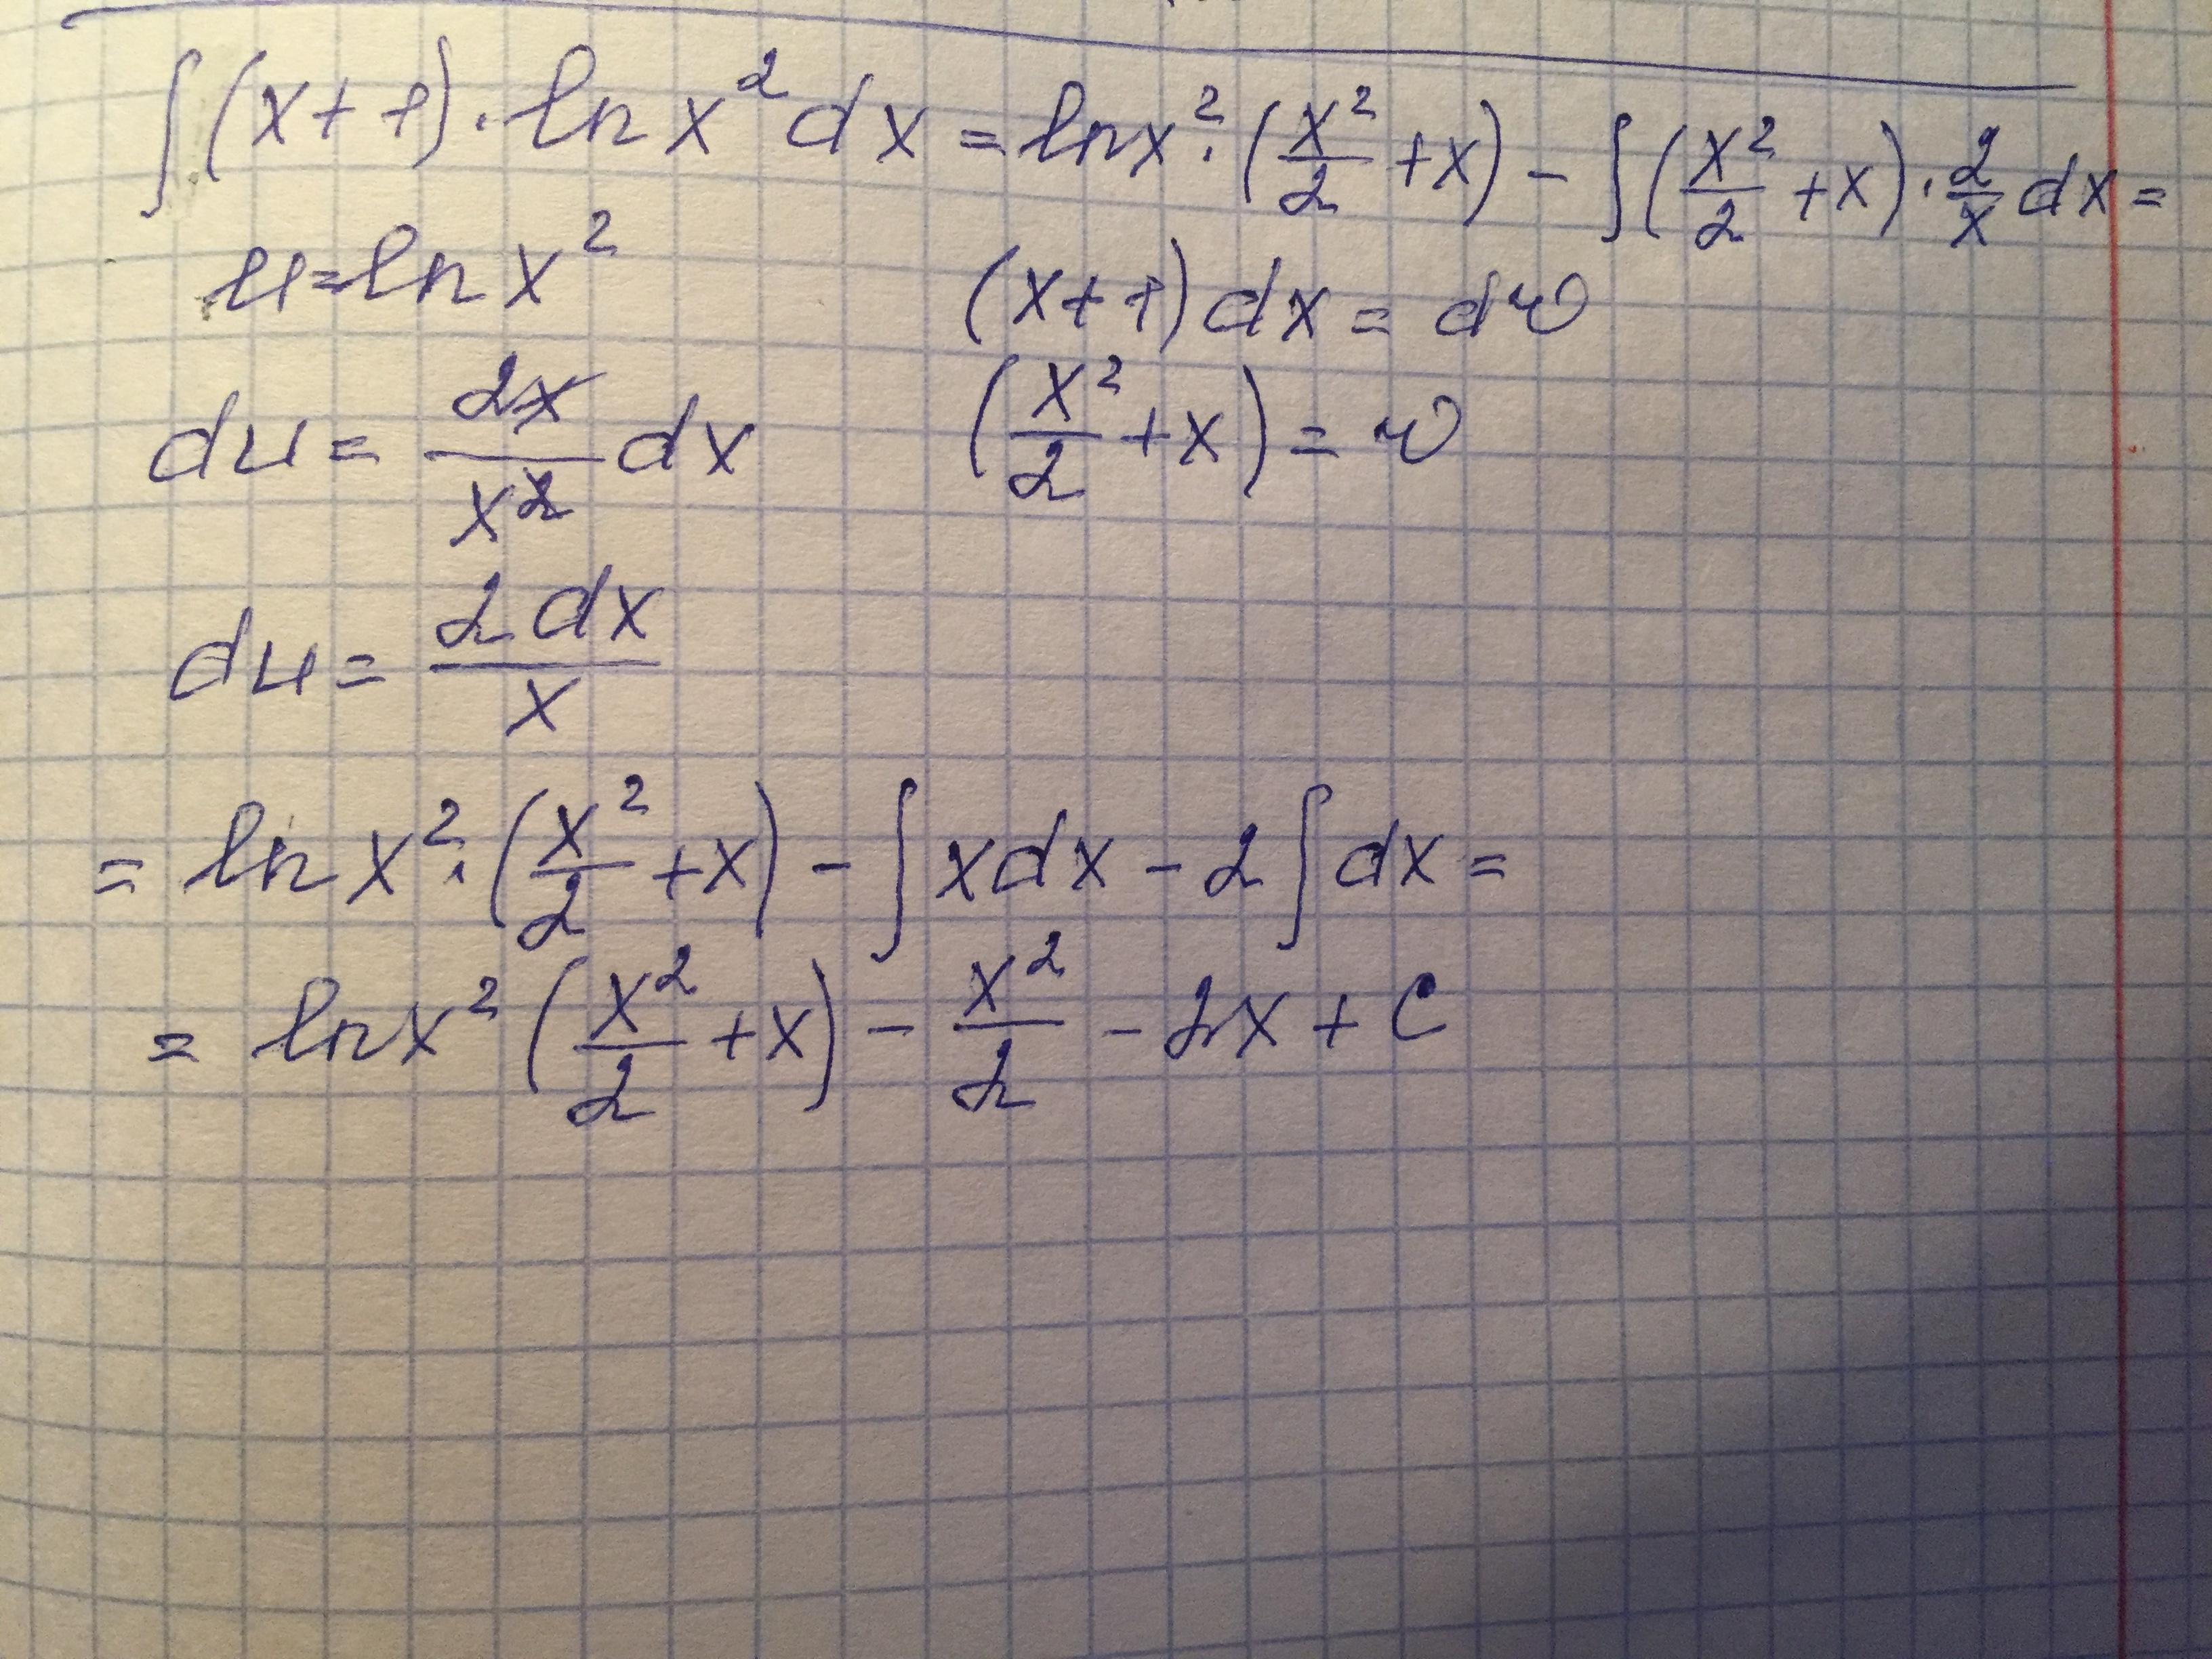 ∫(x+1)·ln x² dx = ln x²·(x²/2 + x) - ∫(x²/2 + x)·2/x dx =
u = ln x² (x+1)dx = dv
du = 2x/x² dx (x²/2 + x) = v
du = 2dx/x
= ln x²·(x²/2 + x) - ∫x dx - 2∫dx =
= ln x² (x²/2 + x) - x²/2 - 2x + C